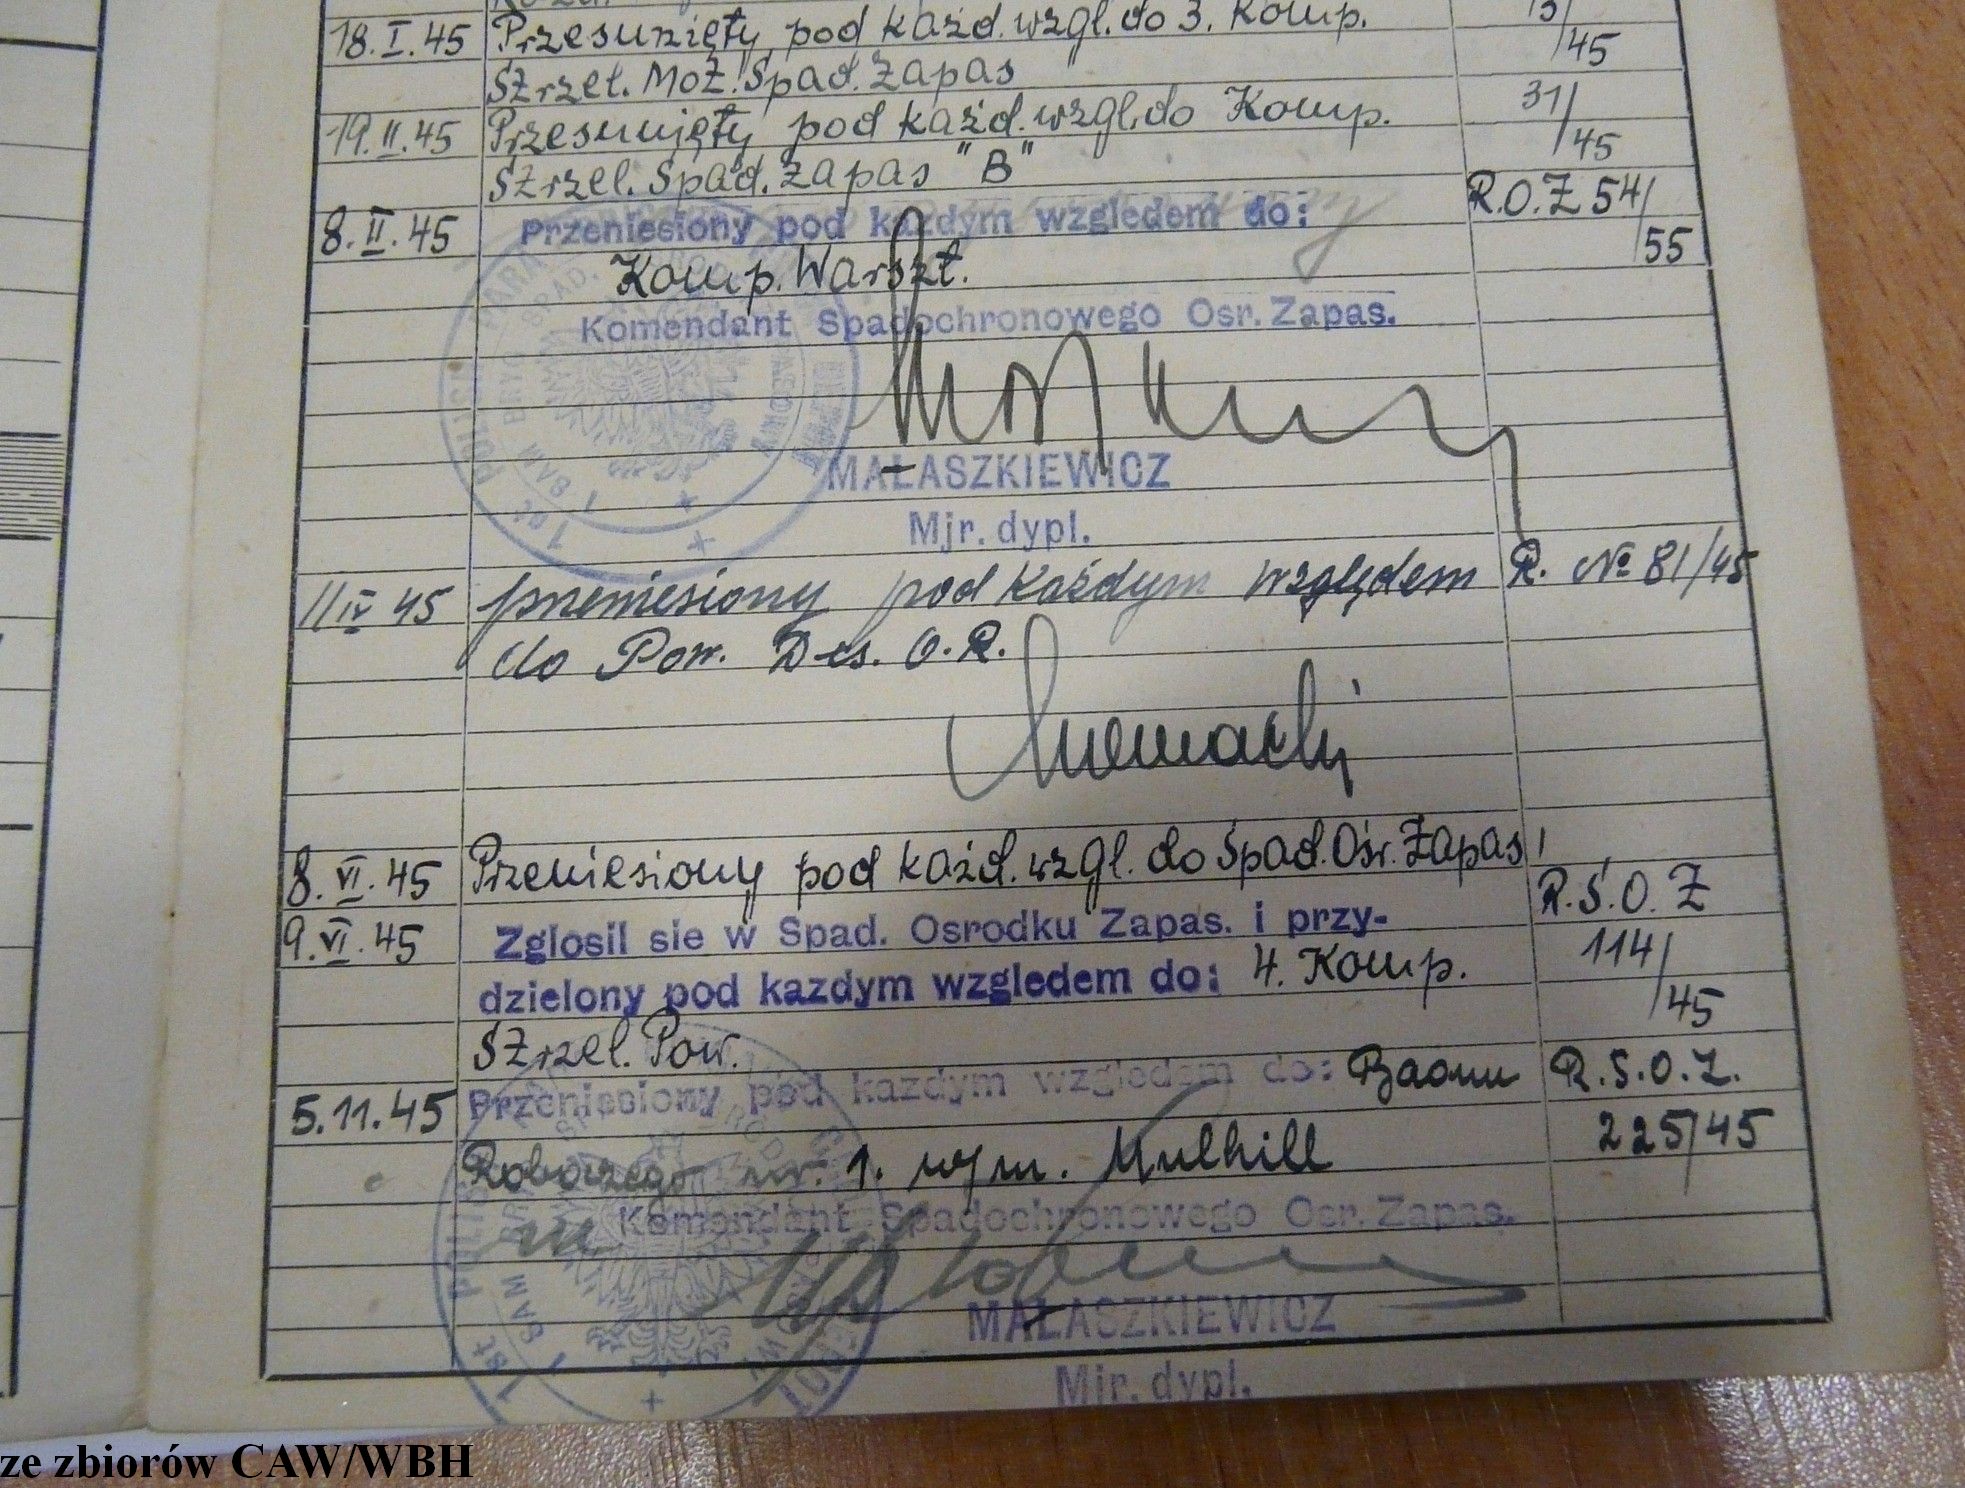 18.I.45 Przesunięty pod każd. wzgl. do 3. Komp. 15/45
Strzel. Moź. Spad. Zapas
19.II.45 Przesunięty pod każd. wzgl. do Komp. 31/45
Strzel. Spad. Zapas "B"
8.II.45 Przeniesiony pod kazdym wzgledem do: R.O.Z 54/55
Komp. Warszt.
Komendant Spadochronowego Osr. Zapas.
MAŁASZKIEWICZ
Mjr. dypl.
11 IV 45 przeniesiony pod każdym względem R. No 81/45
do Pow. Des. O.R.
8.VI.45 Przeniesiony pod każd. wzgl. do Spad. Ośr. Zapas
9.VI.45 Zglosil sie w Spad. Osrodku Zapas. i przy- R.S.O.Z
dzielony pod kazdym wzgledem do: 4. Komp. 114/45
Strzel. Pow.
5.11.45 Przeniesiony pod kazdym wzgledem do: Baonu R.S.O.Z.
Roboczego nr. 1. w m. Mulhill 225/45
Komendant Spadochronowego Osr. Zapas.
MAŁASZKIEWICZ
Mjr. dypl.
ze zbiorów CAW/WBH